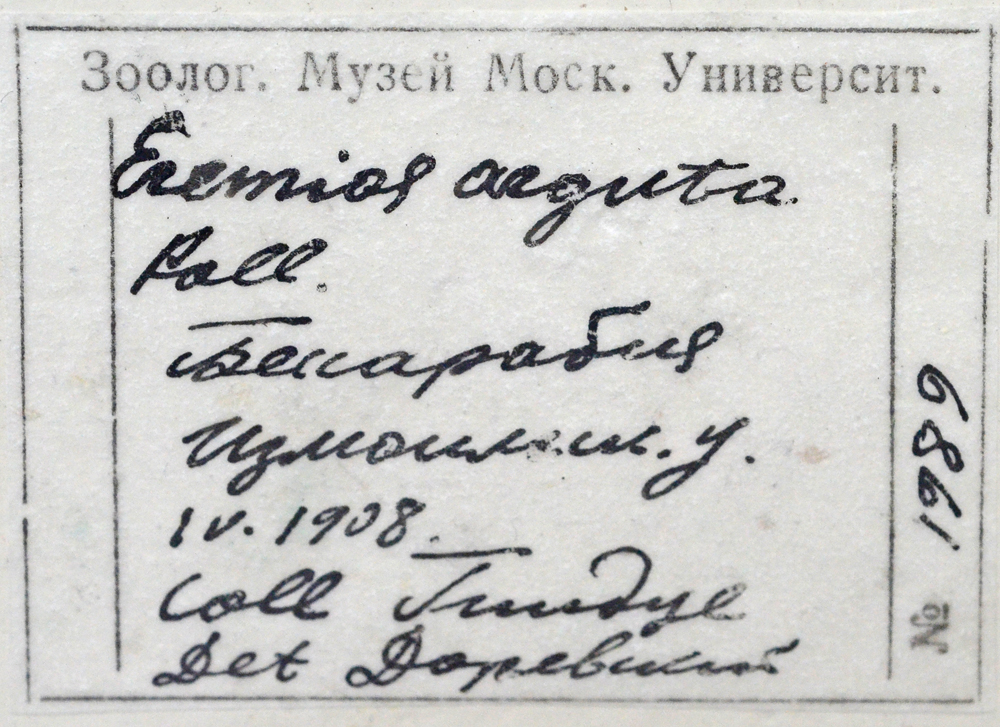 Зоолог. Музей Моск. Университ.
Eremias arguta
Pall.
Бессарабия
Измаильск. у.
IV. 1908.
Coll
Det Даревский
№ 1989